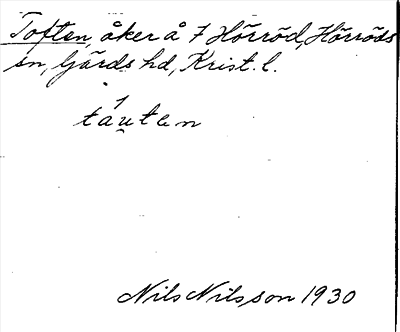 Toften, åker å 7 Hörröd, Hörröds
sn, Gärds hd, Krist. l.
1
tau̯ten
Nils Nilsson 1930